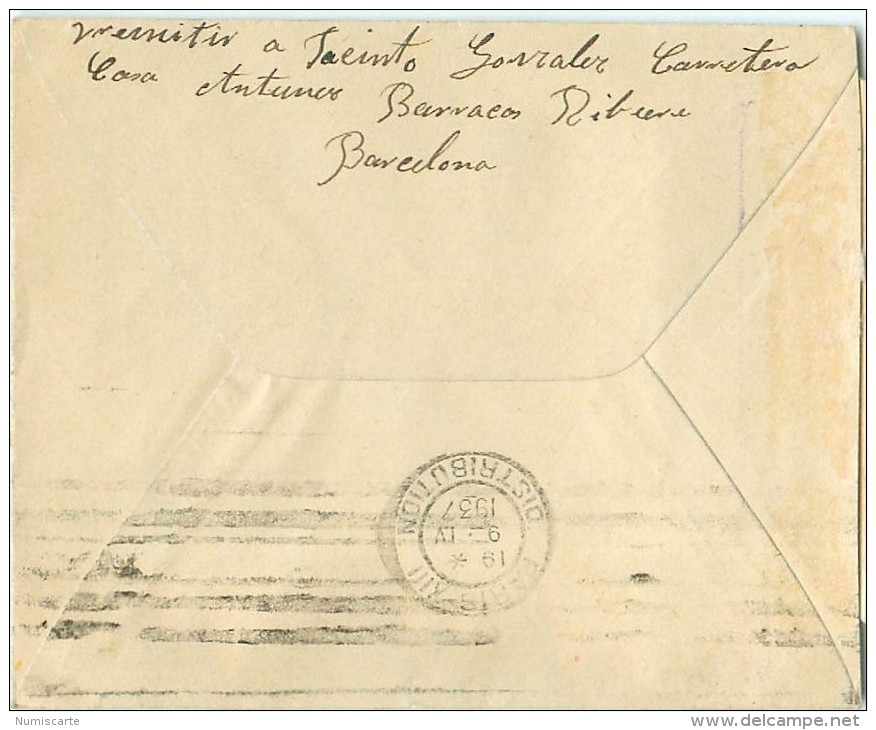 remitir a Jacinto Gonzalez Carretera
Casa Antunez Barracas Ribera
Barcelona
PARIS XIII
19 *
9 - IV
1937
DISTRIBUTION
Numiscarte
www.delcampe.net